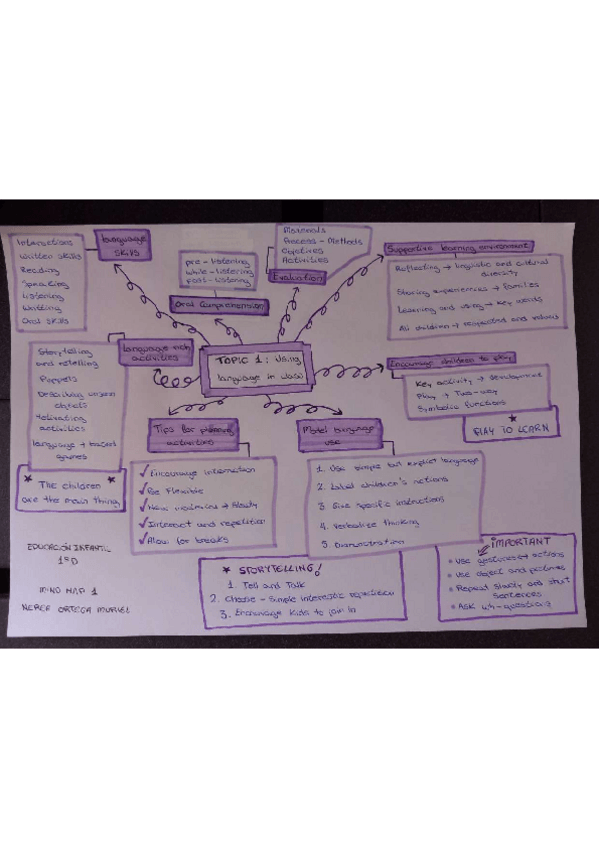 Language
skills
Interactions
Written skills
Reading
Speaking
Listening
Writting
Oral skills
pre-listening
while-listening
post-listening
Oral Comprehension
Materials
Process-Methods
Objetives
Activities
Evaluation
Supportive learning environment
Reflecting → linguistic and cultural
diversity
Sharing experiences → families
Learning and using → key words
All children → respected and values
Language rich
activities
Storytelling
and retelling
Puppets
Describing unseen
objects
activities
language + based
games
* The children *
are the main thing
TOPIC 1: Using
language in
Encourage children to play
Key activity → Development
Play → Two-way
Symbolic functions
*
PLAY TO LEARN
Tips for planning
activities
✓ Encourage interaction
✓ Be flexible
✓ New → Slowly
✓ Interact and repetition
✓ Allow for breaks
Model language
use
1. Use simple but explicit language
2. Label children's actions
3. Give specific instructions
4. Verbalise thinking
5. Demonstration
EDUCACIÓN INFANTIL
1ºD
MIND MAP 1
NEREA ORTEGA MURIEL
* STORYTELLING!
1. Tell and Talk
2. Choose - Simple interestic repetition
3. Encourage kids to join in
IMPORTANT
Use gestures + actions
Use object and pictures
Repeat slowly and short
sentences
Ask wh-questions